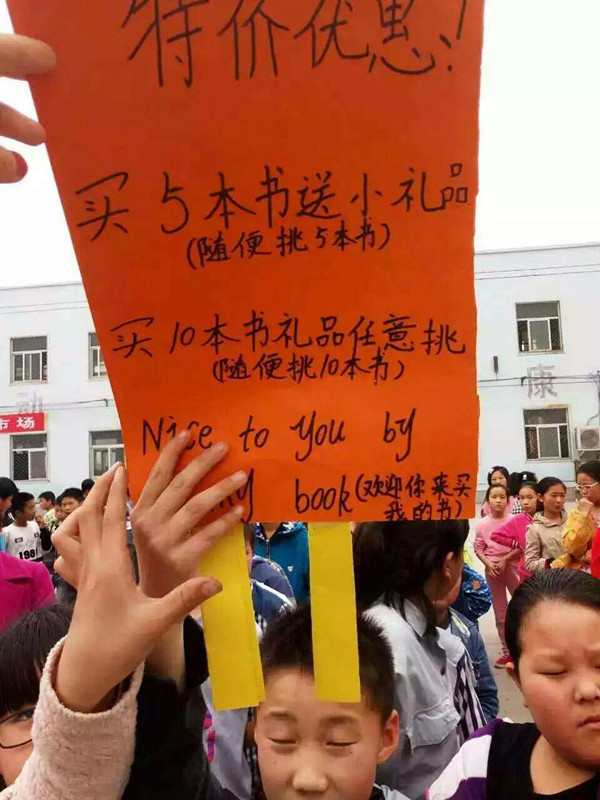 特价优惠!
买5本书送小礼品
(随便挑5本书)
买10本书礼品任意挑
(随便挑10本书)
Nice to you by
book(欢迎你来买
我的书)
市场
动
康